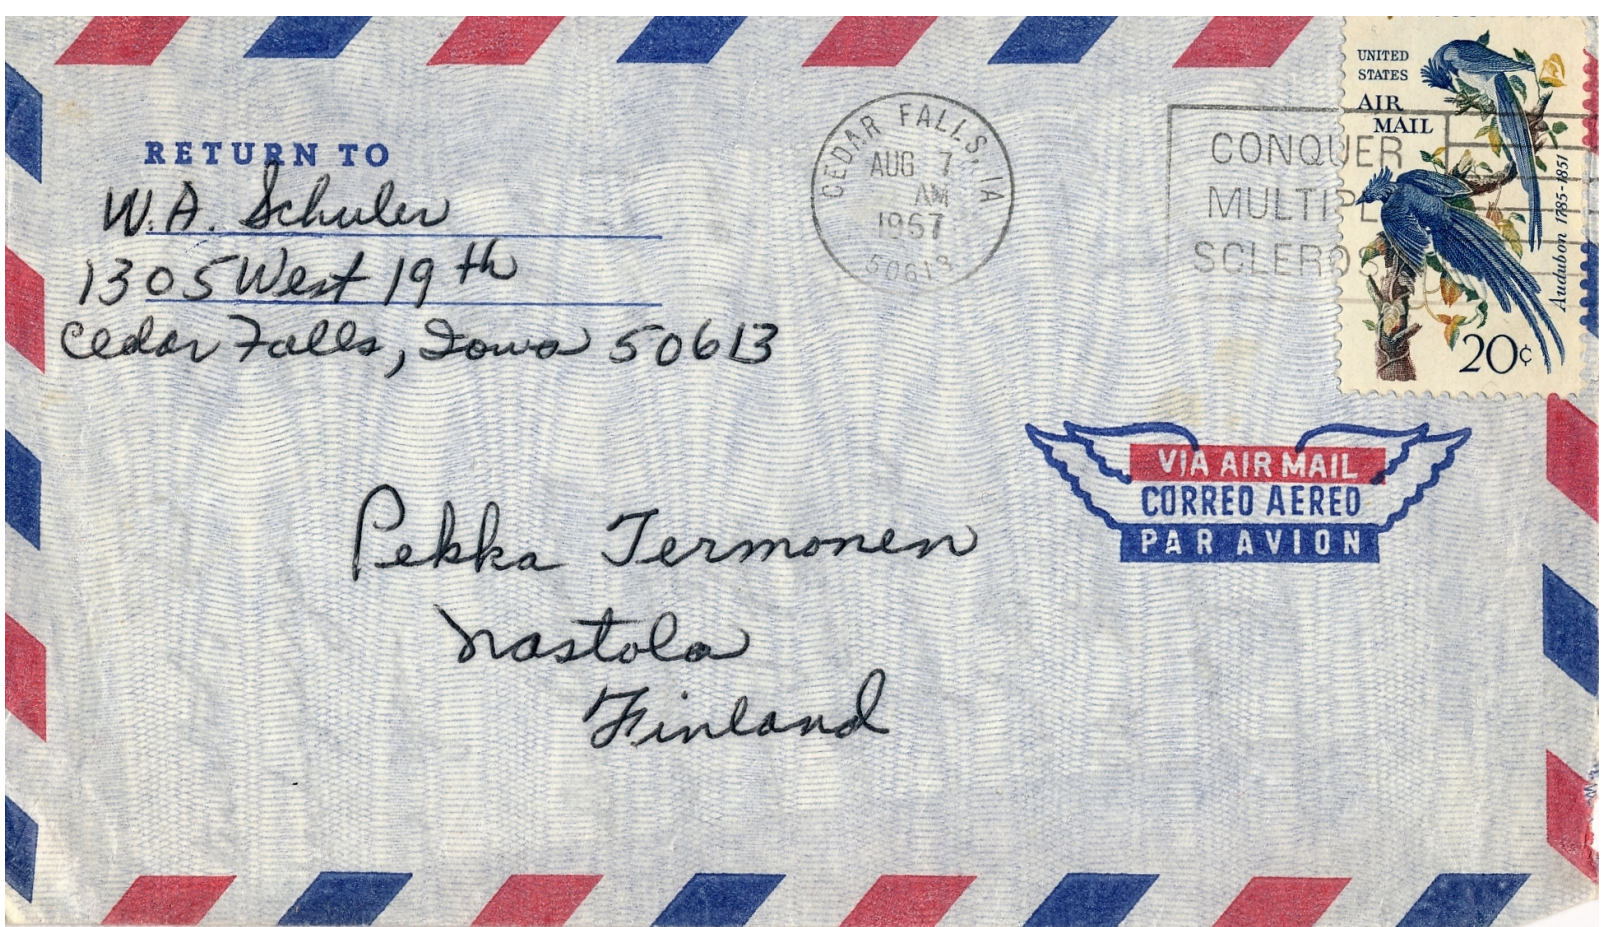 RETURN TO
W.A. Schuler
1305 West 19th
Cedar Falls, Iowa 50613
CEDAR FALLS, IA
AUG 7
AM
1967
50613
CONQUER
MULTIPLE
SCLEROSIS
UNITED
STATES
AIR
MAIL
Audubon 1785-1851
20¢
VIA AIR MAIL
CORREO AEREO
PAR AVION
Pekka Termonen
Nastola
Finland